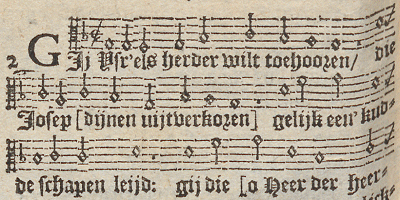 2 GIj Ysr'els herder wilt toehooren/ die
Josep [dijnen uijtverkoren] gelijk een' kud-
de schapen leijd: gij die [o Heer der heer-